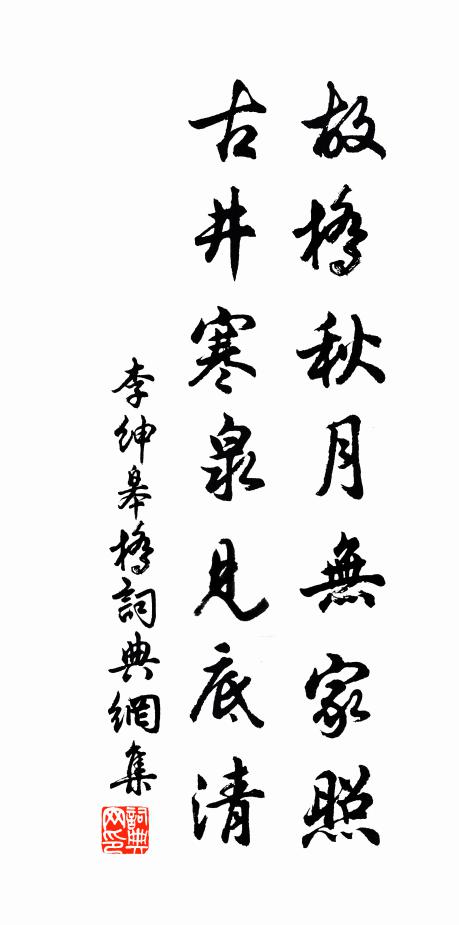 故橋秋月無家照
古井寒泉見底清
李紳皋橋詞典網集
詞典網印